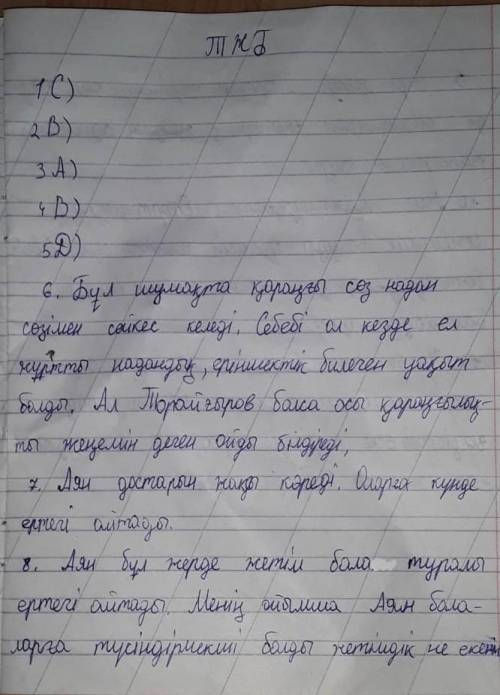 ТЖБ
1 С)
2 В)
3 А)
4 В)
5 D)
6. Бұл шумақта қараңғы сөз надан
сөзімен сәйкес келеді. Себебі ол кезде ел
жұртты надандық, еріншектік билеген уақыт
болды. Ал Торайғыров болса осы қараңғылық-
ты жеңемін деген ойды білдіреді,
7. Аян достарын жақы көреді. Оларға күнде
ертегі айтады.
8. Аян бұл жерде жетім бала туралы
ертегі айтады. Менің ойымша Аян бала-
ларға түсіндірмекші болды жетімдік не екенін